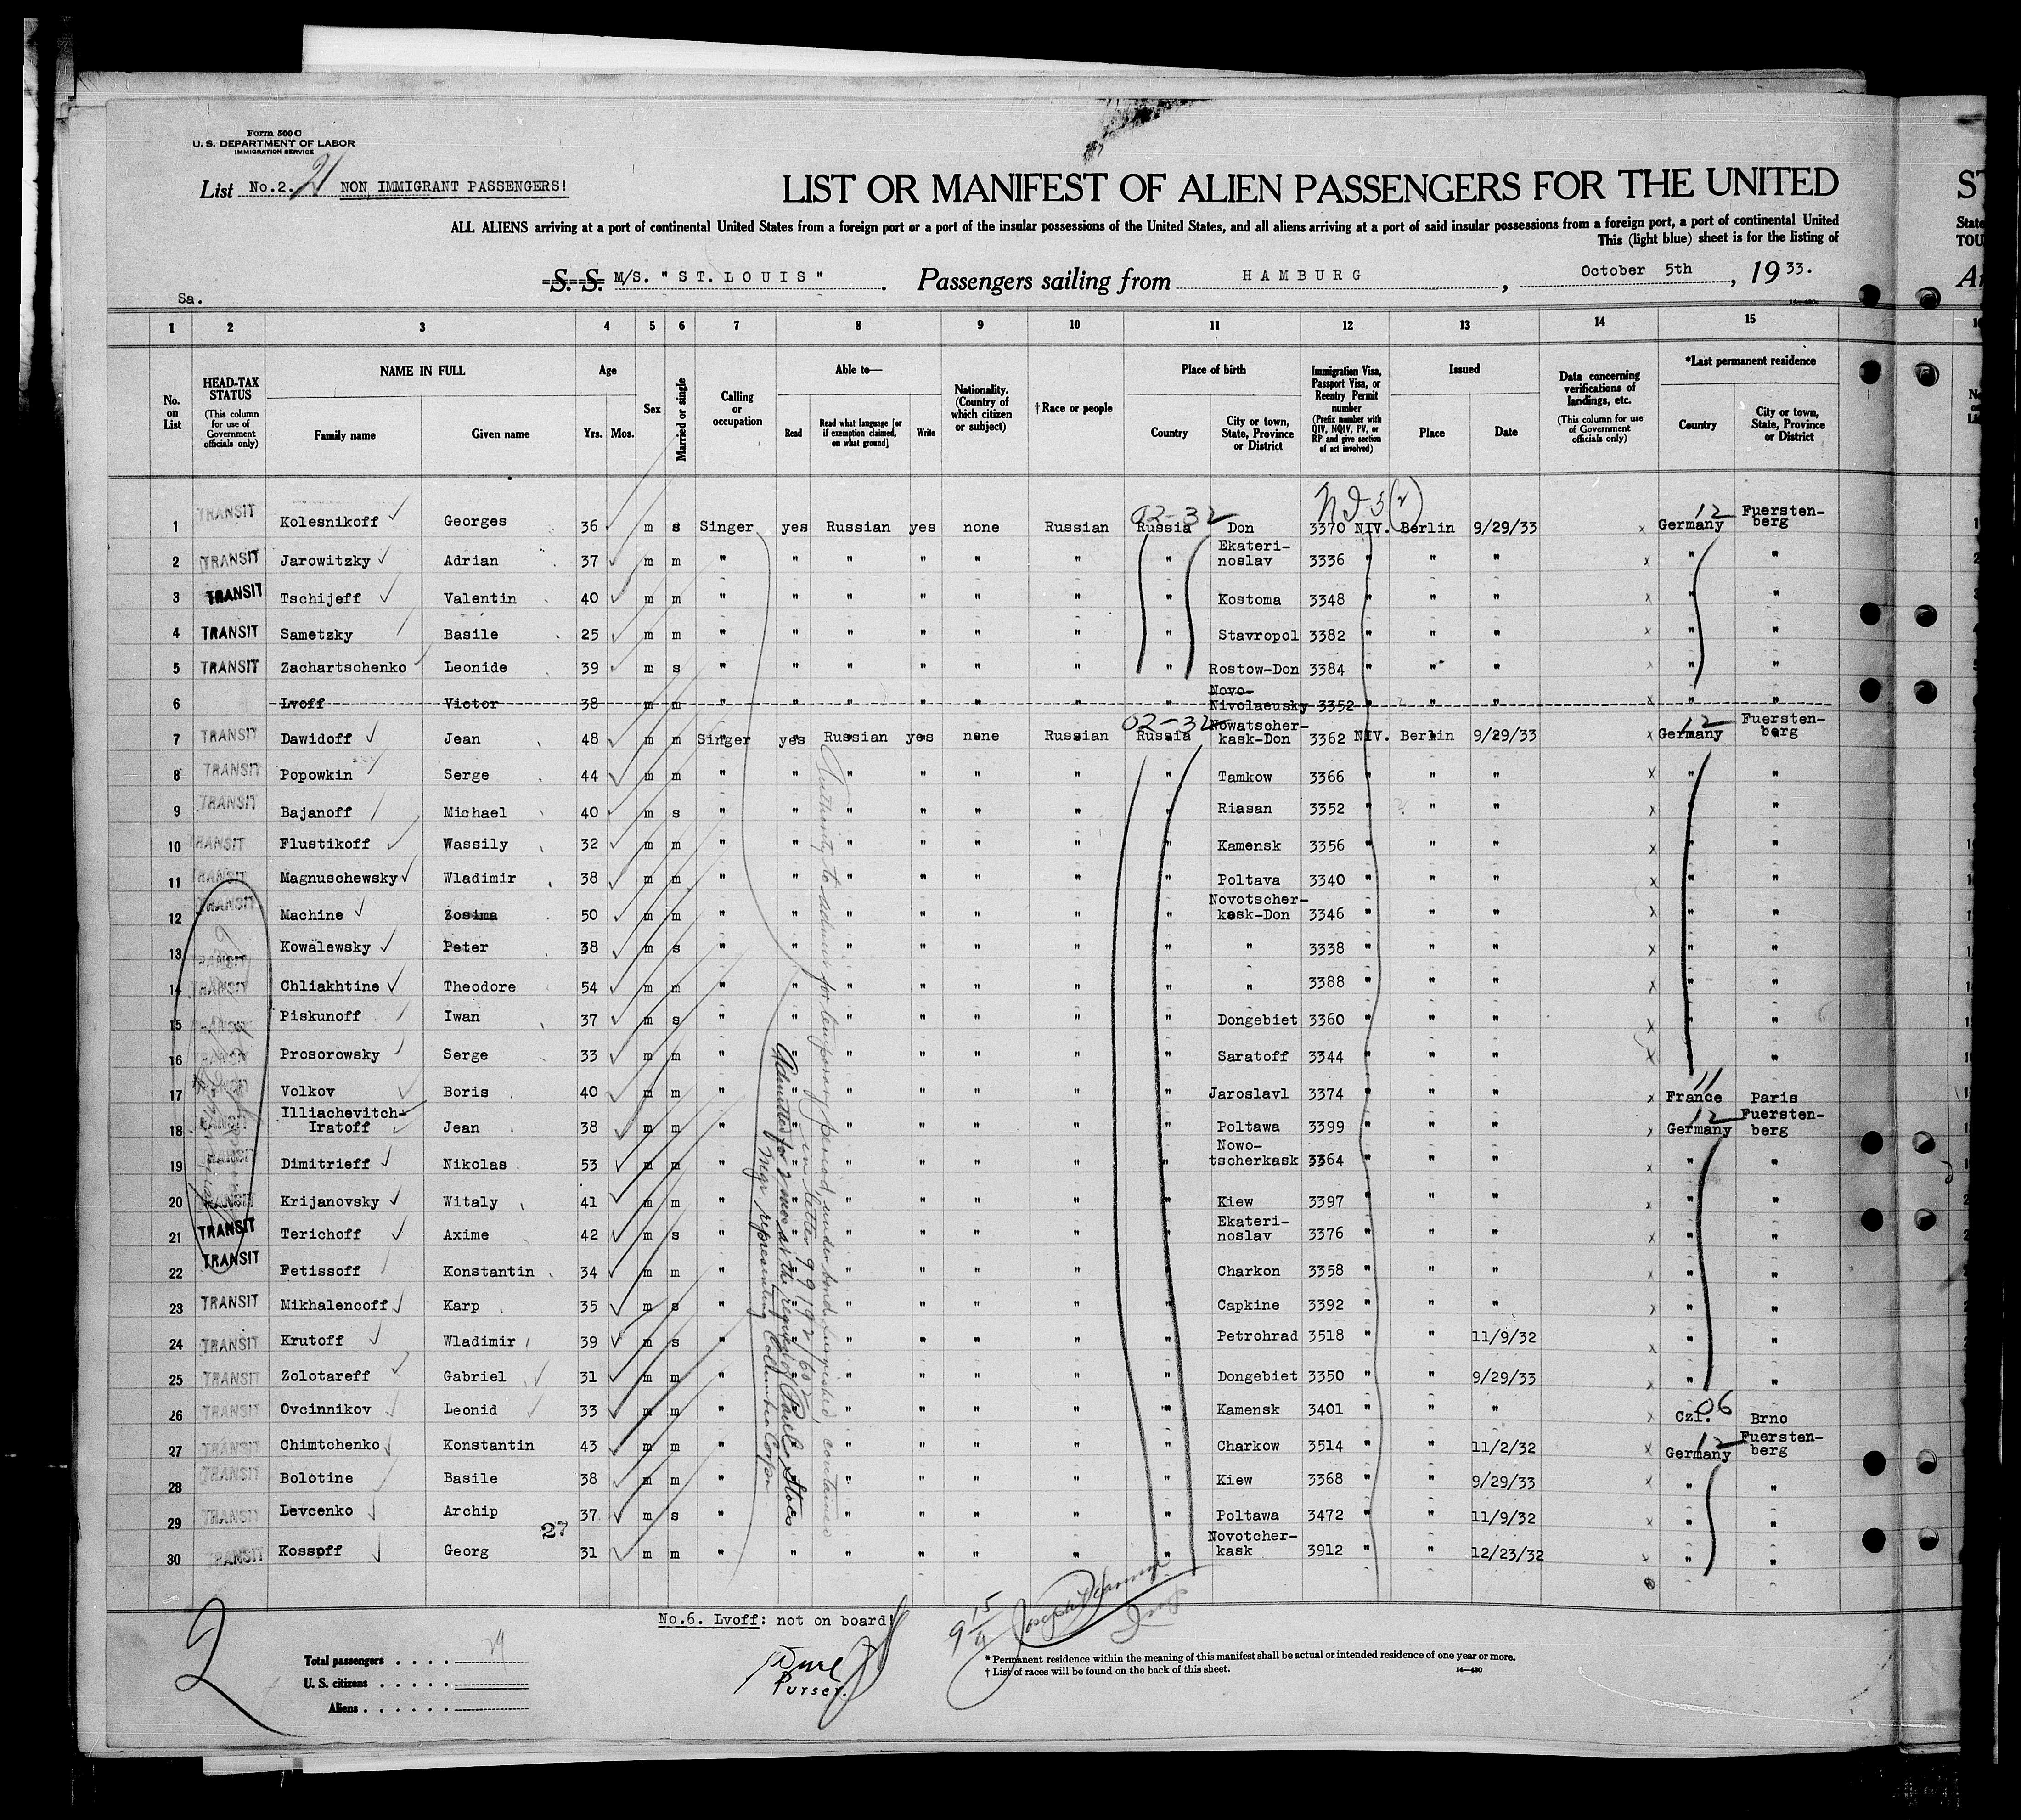 Form 500 C
U. S. DEPARTMENT OF LABOR
IMMIGRATION SERVICE
List No.2. 21 NON IMMIGRANT PASSENGERS!
LIST OR MANIFEST OF ALIEN PASSENGERS FOR THE UNITED
ALL ALIENS arriving at a port of continental United States from a foreign port or a port of the insular possessions of the United States, and all aliens arriving at a port of said insular possessions from a foreign port, a port of continental United
This (light blue) sheet is for the listing of
S. S. M/S. "ST. LOUIS". Passengers sailing from HAMBURG, October 5th, 1933.
Sa.
14—430
1 2 3 4 5 6 7 8 9 10 11 12 13 14 15
No. on List
HEAD-TAX STATUS (This column for use of Government officials only)
NAME IN FULL
Family name Given name
Age
Yrs. Mos.
Sex
Married or single
Calling or occupation
Able to—
Read Read what language [or if exemption claimed, on what ground] Write
Nationality. (Country of which citizen or subject)
† Race or people
Place of birth
Country City or town, State, Province or District
Immigration Visa, Passport Visa, or Reentry Permit number (Prefix number with QIV, NQIV, PV, or RP and give section of act involved)
Issued
Place Date
Data concerning verifications of landings, etc. (This column for use of Government officials only)
*Last permanent residence
Country City or town, State, Province or District
02-32 12
1 TRANSIT Kolesnikoff Georges 36 m s Singer yes Russian yes none Russian Russia Don 3370 NIV. Berlin 9/29/33 x Germany Fuerstenberg
2 TRANSIT Jarowitzky Adrian 37 m m " " " " " " " Ekaterinoslav 3336 " " " x " "
3 TRANSIT Tschijeff Valentin 40 m m " " " " " " " Kostoma 3348 " " " x " "
4 TRANSIT Sametzky Basile 25 m m " " " " " " " Stavropol 3382 " " " x " "
5 TRANSIT Zachartschenko Leonide 39 m s " " " " " " " Rostow-Don 3384 " " " x " "
6 Lvoff Victor 38 m m " " " " " " " Novo-Nivolaeusky 3352 " " " x " "
02-32 12
7 TRANSIT Dawidoff Jean 48 m m Singer yes Russian yes none Russian Russia Nowatscherkask-Don 3362 NIV. Berlin 9/29/33 x Germany Fuerstenberg
8 TRANSIT Popowkin Serge 44 m m " " " " " " " Tamkow 3366 " " " x " "
9 TRANSIT Bajanoff Michael 40 m s " " " " " " " Riasan 3352 " " " x " "
10 TRANSIT Flustikoff Wassily 32 m m " " " " " " " Kamensk 3356 " " " x " "
11 TRANSIT Magnuschewsky Wladimir 38 m m " " " " " " " Poltava 3340 " " " x " "
12 TRANSIT Machine Zosima 50 m m " " " " " " " Novotscherkask-Don 3346 " " " x " "
13 TRANSIT Kowalewsky Peter 38 m s " " " " " " " " 3338 " " " x " "
14 TRANSIT Chliakhtine Theodore 54 m m " " " " " " " " 3388 " " " x " "
15 TRANSIT Piskunoff Iwan 37 m s " " " " " " " Dongebiet 3360 " " " x " "
16 TRANSIT Prosorowsky Serge 33 m m " " " " " " " Saratoff 3344 " " " x " "
17 TRANSIT Volkov Boris 40 m m " " " " " " " Jaroslavl 3374 " " " x 11 France Paris
18 TRANSIT Illiachevitch-Iratoff Jean 38 m m " " " " " " " Poltawa 3399 " " " x 12 Germany Fuerstenberg
19 TRANSIT Dimitrieff Nikolas 53 m m " " " " " " " Nowotscherkask 3364 " " " x " "
20 TRANSIT Krijanovsky Witaly 41 m m " " " " " " " Kiew 3397 " " " x " "
21 TRANSIT Terichoff Axime 42 m s " " " " " " " Ekaterinoslav 3376 " " " x " "
22 TRANSIT Fetissoff Konstantin 34 m m " " " " " " " Charkon 3358 " " " x " "
23 TRANSIT Mikhalencoff Karp 35 m s " " " " " " " Capkine 3392 " " " x " "
24 TRANSIT Krutoff Wladimir 39 m s " " " " " " " Petrohrad 3518 " " 11/9/32 x " "
25 TRANSIT Zolotareff Gabriel 31 m m " " " " " " " Dongebiet 3350 " " 9/29/33 x " "
26 TRANSIT Ovcinnikov Leonid 33 m m " " " " " " " Kamensk 3401 " " " x Czl. 06 Brno
27 TRANSIT Chimtchenko Konstantin 43 m m " " " " " " " Charkow 3514 " " 11/2/32 x 12 Germany Fuerstenberg
28 TRANSIT Bolotine Basile 38 m m " " " " " " " Kiew 3368 " " 9/29/33 x " "
29 TRANSIT Levcenko Archip 37 m s " " " " " " " Poltawa 3472 " " 11/9/32 x " "
27
30 TRANSIT Kossoff Georg 31 m m " " " " " " " Novotcherkask 3912 " " 12/23/32 x " "
Authority to admit for temporary period, under bond furnished, contained
in letter 99192/602
Admitted for 2 mos at the request of Paul Stoes
Mgr representing Columbia Corpn
No.6. Lvoff: not on board!
2
Total passengers . . . . 29
U. S. citizens . . . . . .
Aliens . . . . . .
Purser.
* Permanent residence within the meaning of this manifest shall be actual or intended residence of one year or more.
† List of races will be found on the back of this sheet.
14—430